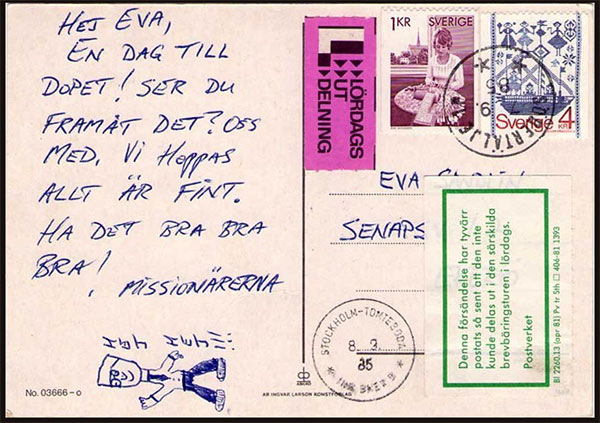 HEJ EVA,
EN DAG TILL
DOPET! SER DU
FRAMÅT DET? OSS
MED. VI HOPPAS
ALLT ÄR FINT.
HA DET BRA BRA
BRA!
MISSIONÄRERNA
HEJ HEJ
No. 03666-o
LÖRDAGS
UT
DELNING
1KR SVERIGE
Sverige 4 KR
SÖDERTÄLJE
85
EVA
SENAPS
STOCKHOLM-TOMTEBODA
8. 9.
85
Denna försändelse har tyvärr
postats så sent att den inte
kunde delas ut i den särskilda
brevbäringsturen i lördags.
Postverket
Bl 2260.13 (apr 81) Pv tr Sth 406-81 1393
AB INGVAR LARSON KONSTFÖRLAG